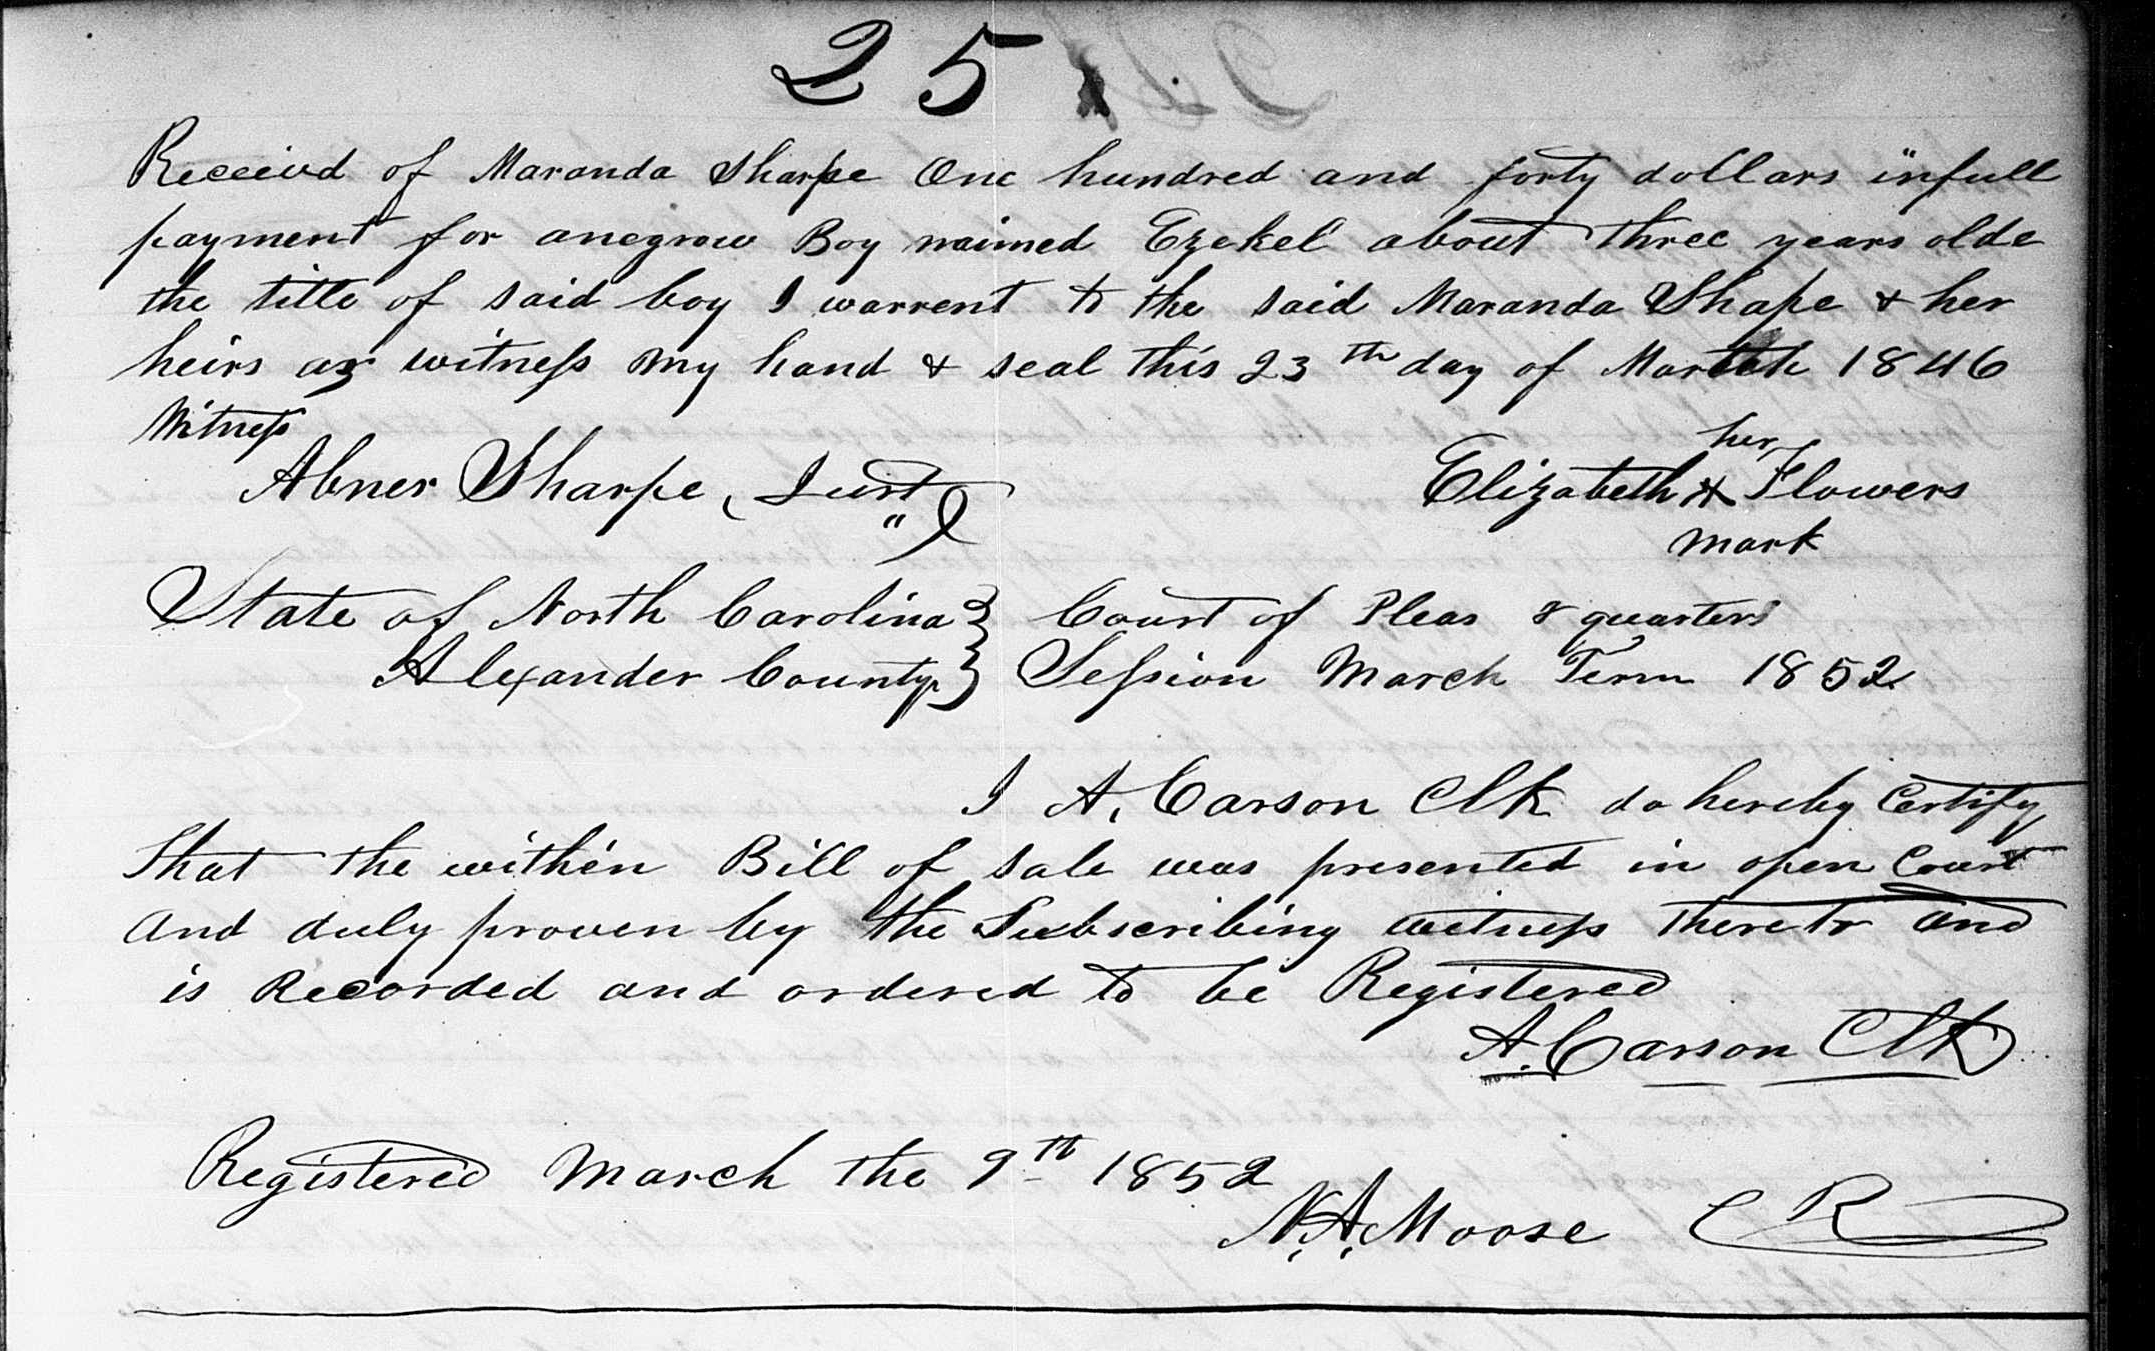 25
Receivd of Maranda Sharpe One hundred and forty dollars infull
payment for anegrow Boy naimed Ezekel about three years olde
the title of said boy I warrent to the said Maranda Shape & her
heirs as witness my hand & seal this 23th day of March 1846
Witness
her
Abner Sharpe, Jurt Elizabeth X Flowers
mark
State of North Carolina } Court of Pleas & quarters
Alexander County } Session March Term 1852
I A. Carson Clk do hereby Certify
That the within Bill of sale was presented in open Court
And duly proven by the Subscribing witness thereto and
is Recorded and ordered to be Registered
A. Carson Clk
Registered March the 9th 1852
N. A. Moose R